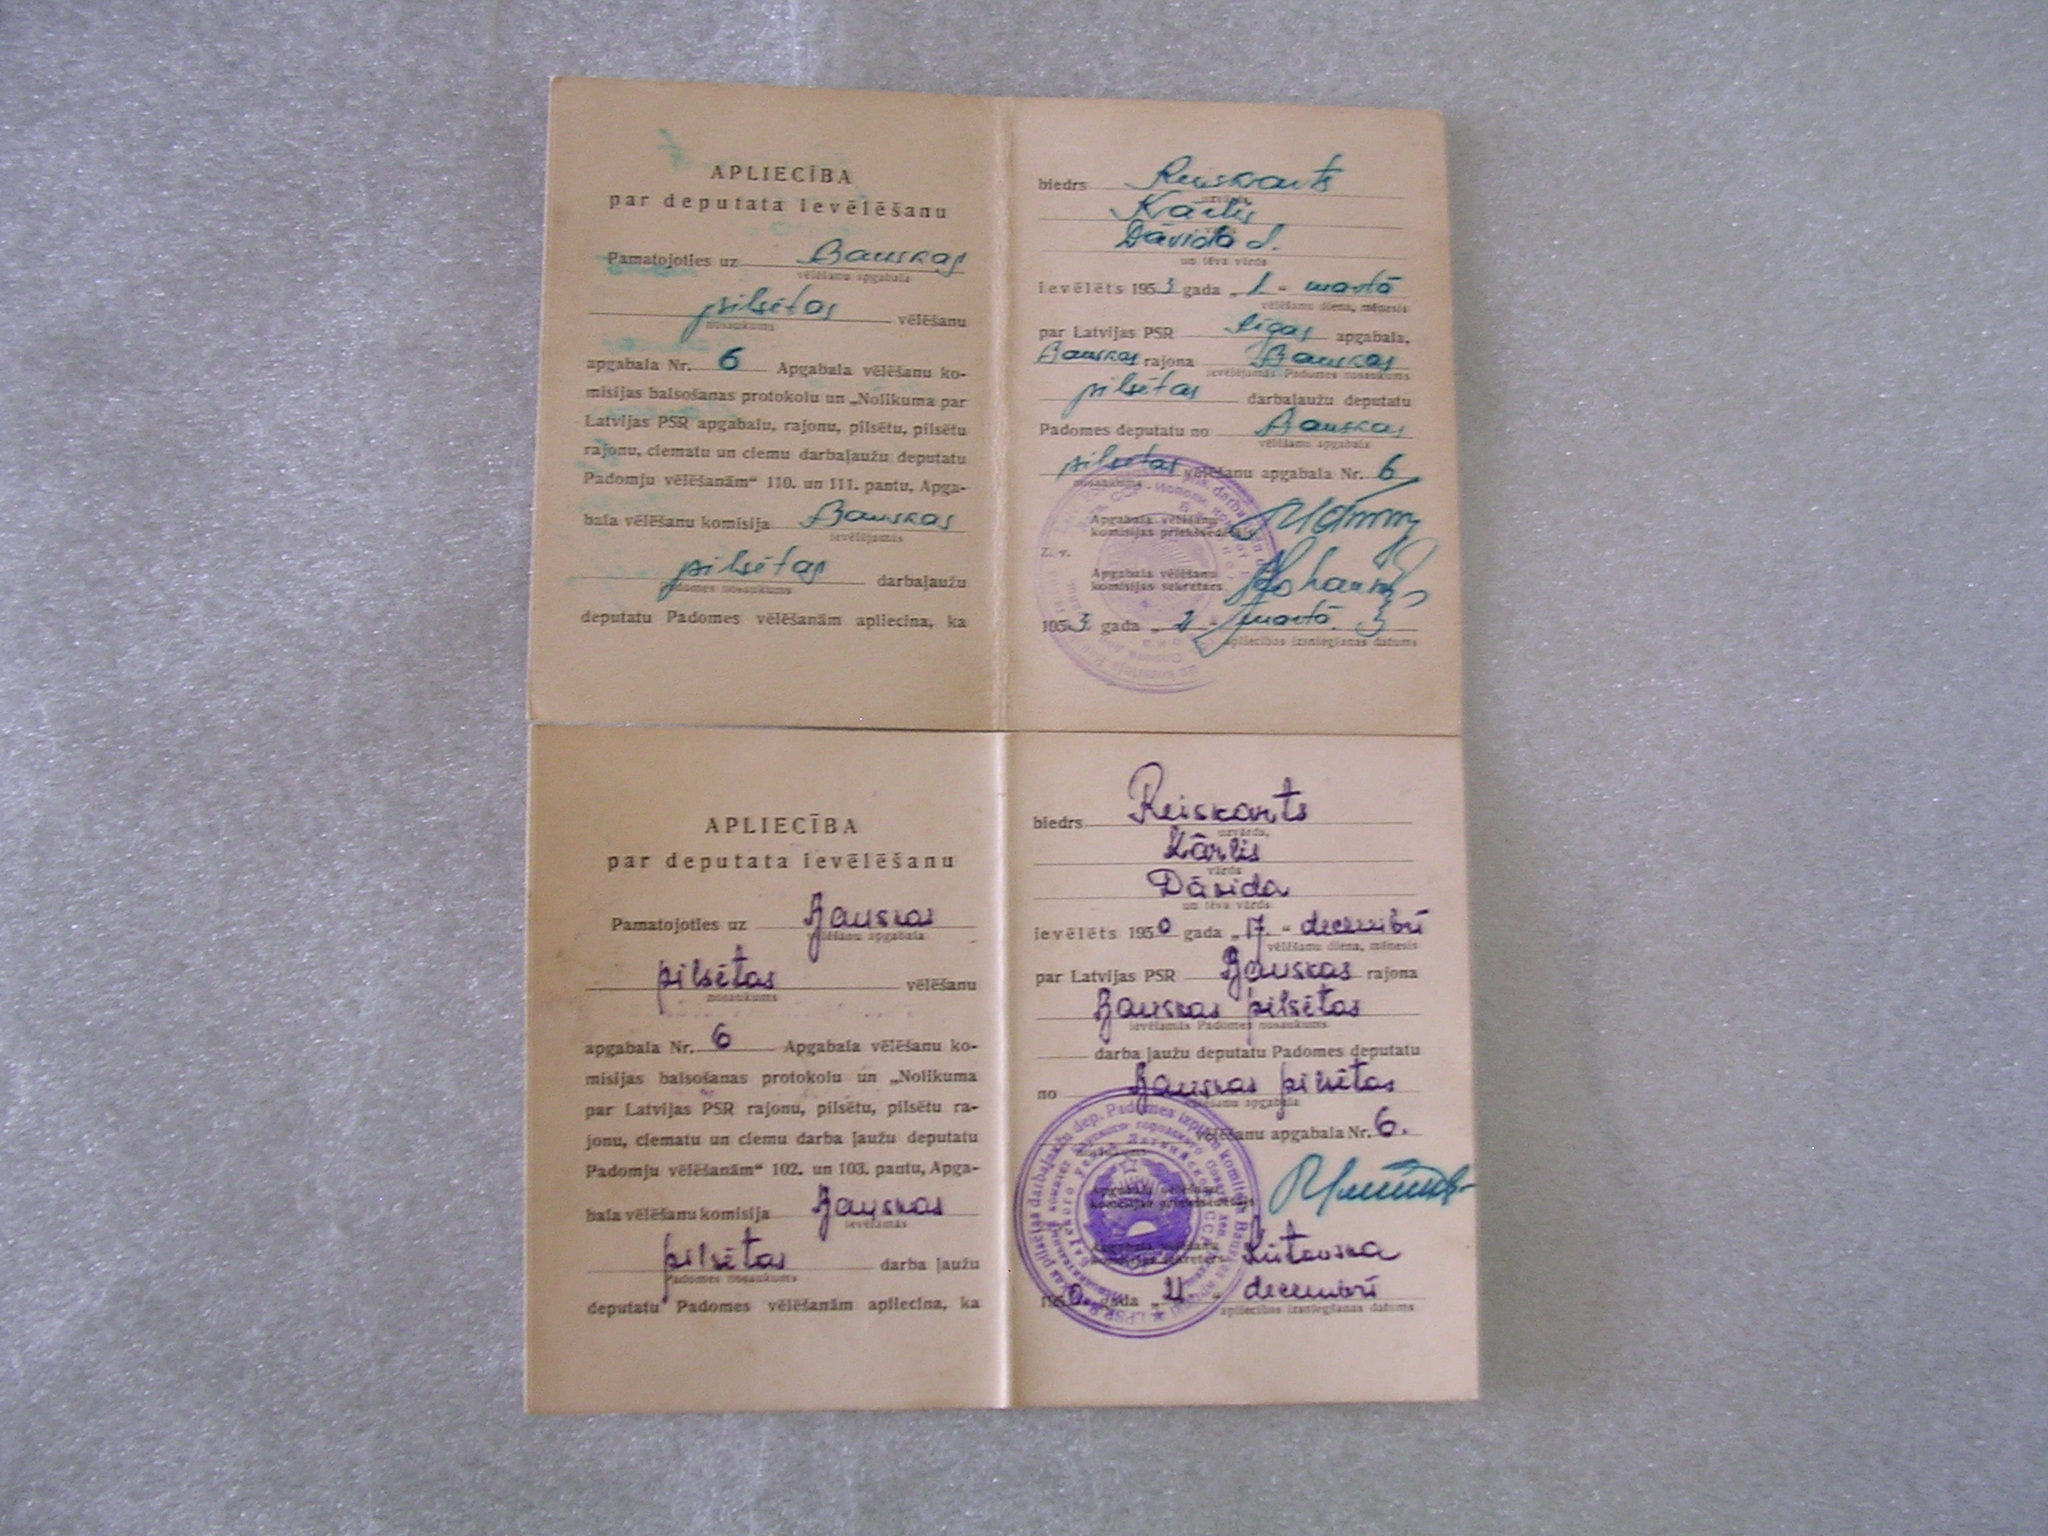 APLIECĪBA
par deputata ievēlēšanu
Pamatojoties uz Bauskas
vēlēšanu apgabala
pilsētas vēlēšanu
nosaukums
apgabala Nr. 6 Apgabala vēlēšanu ko-
misijas balsošanas protokolu un „Nolikuma par
Latvijas PSR apgabalu, rajonu, pilsētu, pilsētu
rajonu, ciematu un ciemu darbaļaužu deputatu
Padomju vēlēšanām“ 110. un 111. pantu, Apga-
bala vēlēšanu komisija Bauskas
ievēlējamās
pilsētas darbaļaužu
Padomes nosaukums
deputatu Padomes vēlēšanām apliecina, ka
biedrs Reiskarts
uzvārds,
Kārlis
vārds
Dāvida d.
un tēva vārds
ievēlēts 1953 gada „1.“ martā
vēlēšanu diena, mēnesis
par Latvijas PSR Rīgas apgabala,
Bauskas rajona Bauskas
ievēlējamās Padomes nosaukums
pilsētas darbaļaužu deputatu
Padomes deputatu no Bauskas
vēlēšanu apgabala
pilsētas vēlēšanu apgabala Nr. 6
nosaukums
Apgabala vēlēšanu
komisijas priekšsēdētājs
Z. v.
Apgabala vēlēšanu
komisijas sekretārs
1953. gada „2“ martā
apliecības izsniegšanas datums
APLIECĪBA
par deputata ievēlēšanu
Pamatojoties uz Bauskas
vēlēšanu apgabala
pilsētas vēlēšanu
nosaukums
apgabala Nr. 6 Apgabala vēlēšanu ko-
misijas balsošanas protokolu un „Nolikuma
par Latvijas PSR rajonu, pilsētu, pilsētu ra-
jonu, ciematu un ciemu darba ļaužu deputatu
Padomju vēlēšanām“ 102. un 103. pantu, Apga-
bala vēlēšanu komisija Bauskas
ievēlamās
pilsētas darba ļaužu
Padomes nosaukums
deputatu Padomes vēlēšanām apliecina, ka
biedrs Reiskarts
uzvārds,
Kārlis
vārds
Dāvida
un tēva vārds
ievēlēts 1950 gada „17.“ decembrī
vēlēšanu diena, mēnesis
par Latvijas PSR Bauskas rajona
Bauskas pilsētas
ievēlamās Padomes nosaukums
darba ļaužu deputatu Padomes deputatu
no Bauskas pilsētas
vēlēšanu apgabala
vēlēšanu apgabala Nr. 6.
Apgabala vēlēšanu
komisijas priekšsēdētājs
Apgabala vēlēšanu
komisijas sekretārs
1950. gada „21“ decembrī
apliecības izsniegšanas datums